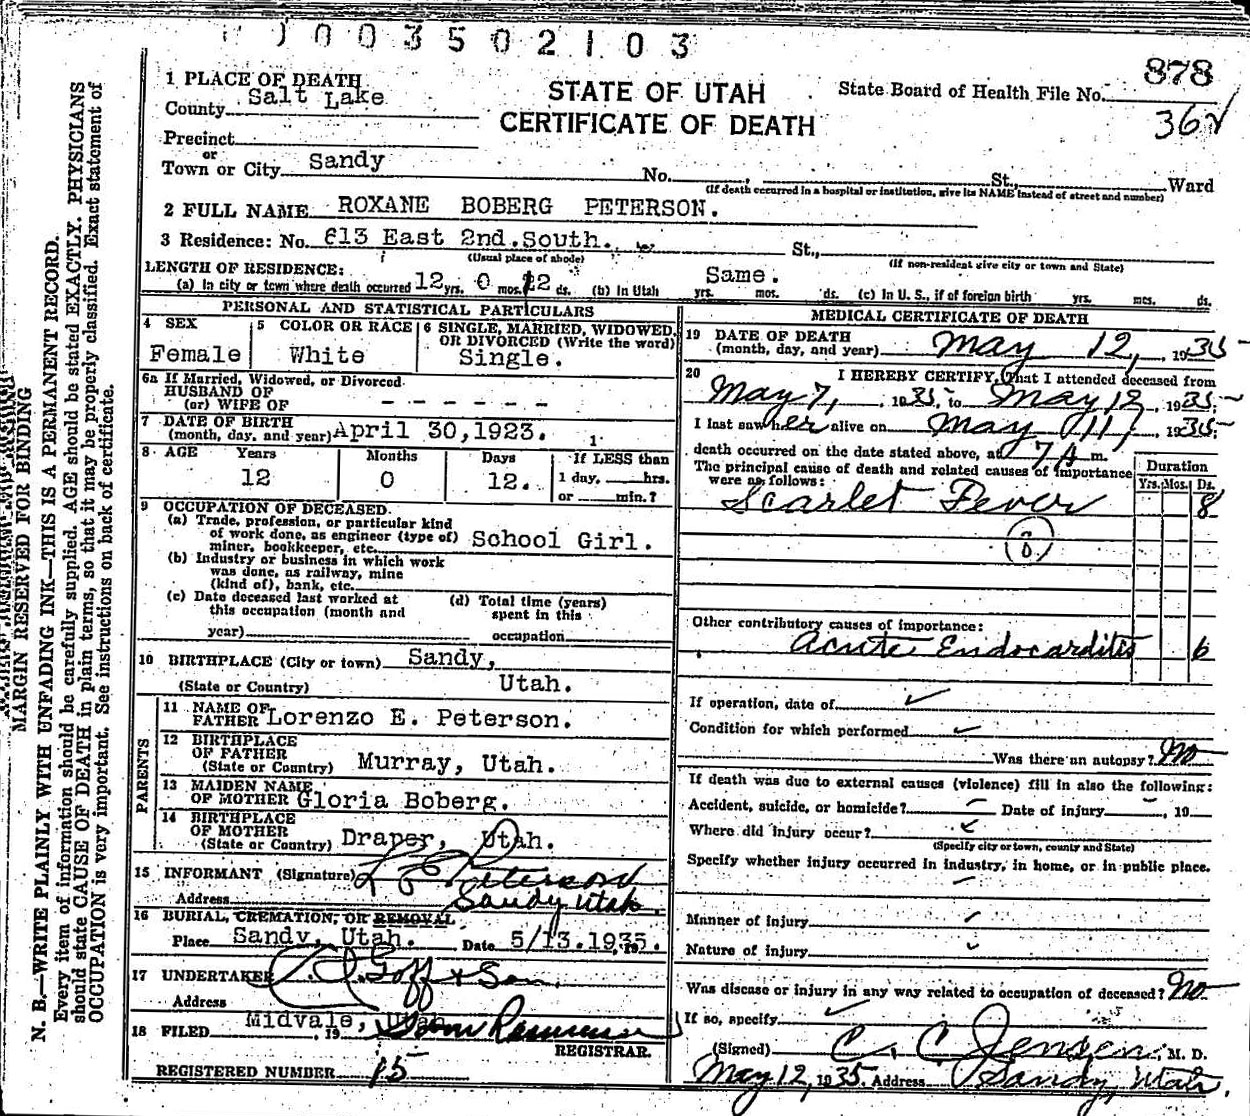 0003502103
1 PLACE OF DEATH
County Salt Lake
STATE OF UTAH
CERTIFICATE OF DEATH
State Board of Health File No. 878
362
Precinct
or
Town or City Sandy No. , St., Ward
(If death occurred in a hospital or institution, give its NAME instead of street and number)
2 FULL NAME ROXANE BOBERG PETERSON.
3 Residence: No. 613 East 2nd.South. St.,
(Usual place of abode) (If non-resident give city or town and State)
LENGTH OF RESIDENCE:
(a) In city or town where death occurred 12 yrs. 0 mos. 12 ds. (b) In Utah Same. yrs. mos. ds. (c) In U. S., if of foreign birth yrs. mos. ds.
PERSONAL AND STATISTICAL PARTICULARS
4 SEX
Female
5 COLOR OR RACE
White
6 SINGLE, MARRIED, WIDOWED, OR DIVORCED (Write the word)
Single.
6a If Married, Widowed, or Divorced
HUSBAND OF
(or) WIFE OF - - - - - -
7 DATE OF BIRTH
(month, day, and year) April 30,1923.
8 AGE Years Months Days If LESS than
12 0 12. 1 day, hrs.
or min.?
9 OCCUPATION OF DECEASED
(a) Trade, profession, or particular kind
of work done, as engineer (type of)
miner, bookkeeper, etc. School Girl.
(b) Industry or business in which work
was done, as railway, mine
(kind of), bank, etc.
(c) Date deceased last worked at
this occupation (month and
year)
(d) Total time (years)
spent in this
occupation
10 BIRTHPLACE (City or town) Sandy,
(State or Country) Utah.
PARENTS
11 NAME OF
FATHER Lorenzo E. Peterson.
12 BIRTHPLACE
OF FATHER
(State or Country) Murray, Utah.
13 MAIDEN NAME
OF MOTHER Gloria Boberg.
14 BIRTHPLACE
OF MOTHER
(State or Country) Draper, Utah.
15 INFORMANT (Signature) L E Peterson
Address Sandy Utah.
16 BURIAL, CREMATION, OR REMOVAL
Place Sandy, Utah. Date 5/13.1935.
17 UNDERTAKER Goff & Son
Address
Midvale, Utah
18 FILED , 19
REGISTRAR.
REGISTERED NUMBER 15
MEDICAL CERTIFICATE OF DEATH
19 DATE OF DEATH
(month, day, and year) May 12, , 1935
20 I HEREBY CERTIFY, That I attended deceased from
May 7, , 1935, to May 12, 1935;
I last saw her alive on May 11, 1935;
death occurred on the date stated above, at 7 A m.
The principal cause of death and related causes of importance
were as follows:
Duration
Yrs. Mos. Ds.
Scarlet Fever 8
Other contributory causes of importance:
Acute Endocarditis 6
If operation, date of
Condition for which performed
Was there an autopsy? No
If death was due to external causes (violence) fill in also the following:
Accident, suicide, or homicide? Date of injury , 19
Where did injury occur?
(Specify city or town, county and State)
Specify whether injury occurred in industry, in home, or in public place.
Manner of injury
Nature of injury
Was disease or injury in any way related to occupation of deceased? No
If so, specify
(Signed) C. C. Jensen, M. D.
May 12, 1935. Address Sandy, Utah.
MARGIN RESERVED FOR BINDING
N. B.—WRITE PLAINLY WITH UNFADING INK—THIS IS A PERMANENT RECORD.
Every item of information should be carefully supplied. AGE should be stated EXACTLY. PHYSICIANS
should state CAUSE OF DEATH in plain terms, so that it may be properly classified. Exact statement of
OCCUPATION is very important. See instructions on back of certificate.